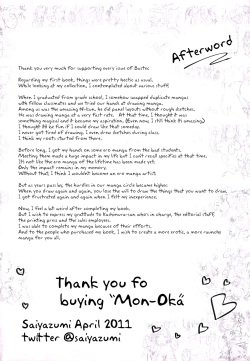 Afterword
Thank you very much for supporting every issue of Buster.
Regarding my first book, things were pretty hectic as usual.
While looking at my collection, I contemplated about various stuff.
When I graduated from grade school, I somehow swapped duplicate mangas
with fellow classmates and we tried our hands at drawing manga.
Among us was the amazing M-kun, he did panel layouts without rough sketches.
He was drawing manga at a very fast rate. At that time, I thought it was
something magical and it became my aspiration. (Even now, I still think it's amazing)
I thought it'd be fun if I could draw like that someday.
I never got tired of drawing. I even drew sketches during class.
I think my roots started from there.
Before long, I got my hands on some ero manga from the local students.
Meeting them made a huge impact in my life but I can't recall specifics at that time.
It's not like the ero mangas of the lifetime has been made yet.
Only the impact remains in my memory.
Without that, I think I wouldn't become an ero manga artist.
But as years pass by, the hurdles in our manga circle became higher.
When you draw again and again, you lose the will to draw the things that you want to draw.
I got frustrated again and again when I felt my inexperience.
Now, I feel a bit weird after completing my book.
But I wish to express my gratitude to Kadomura-san who's in charge, the editorial staff
the printing press and the sales employees.
I was able to complete my manga because of their efforts.
And to the people who purchased my book, I wish to create a more erotic, a more raunchy
manga for you all.
Thank you fo
buying "Mon-Oká
Saiyazumi April 2011
twitter @saiyazumi